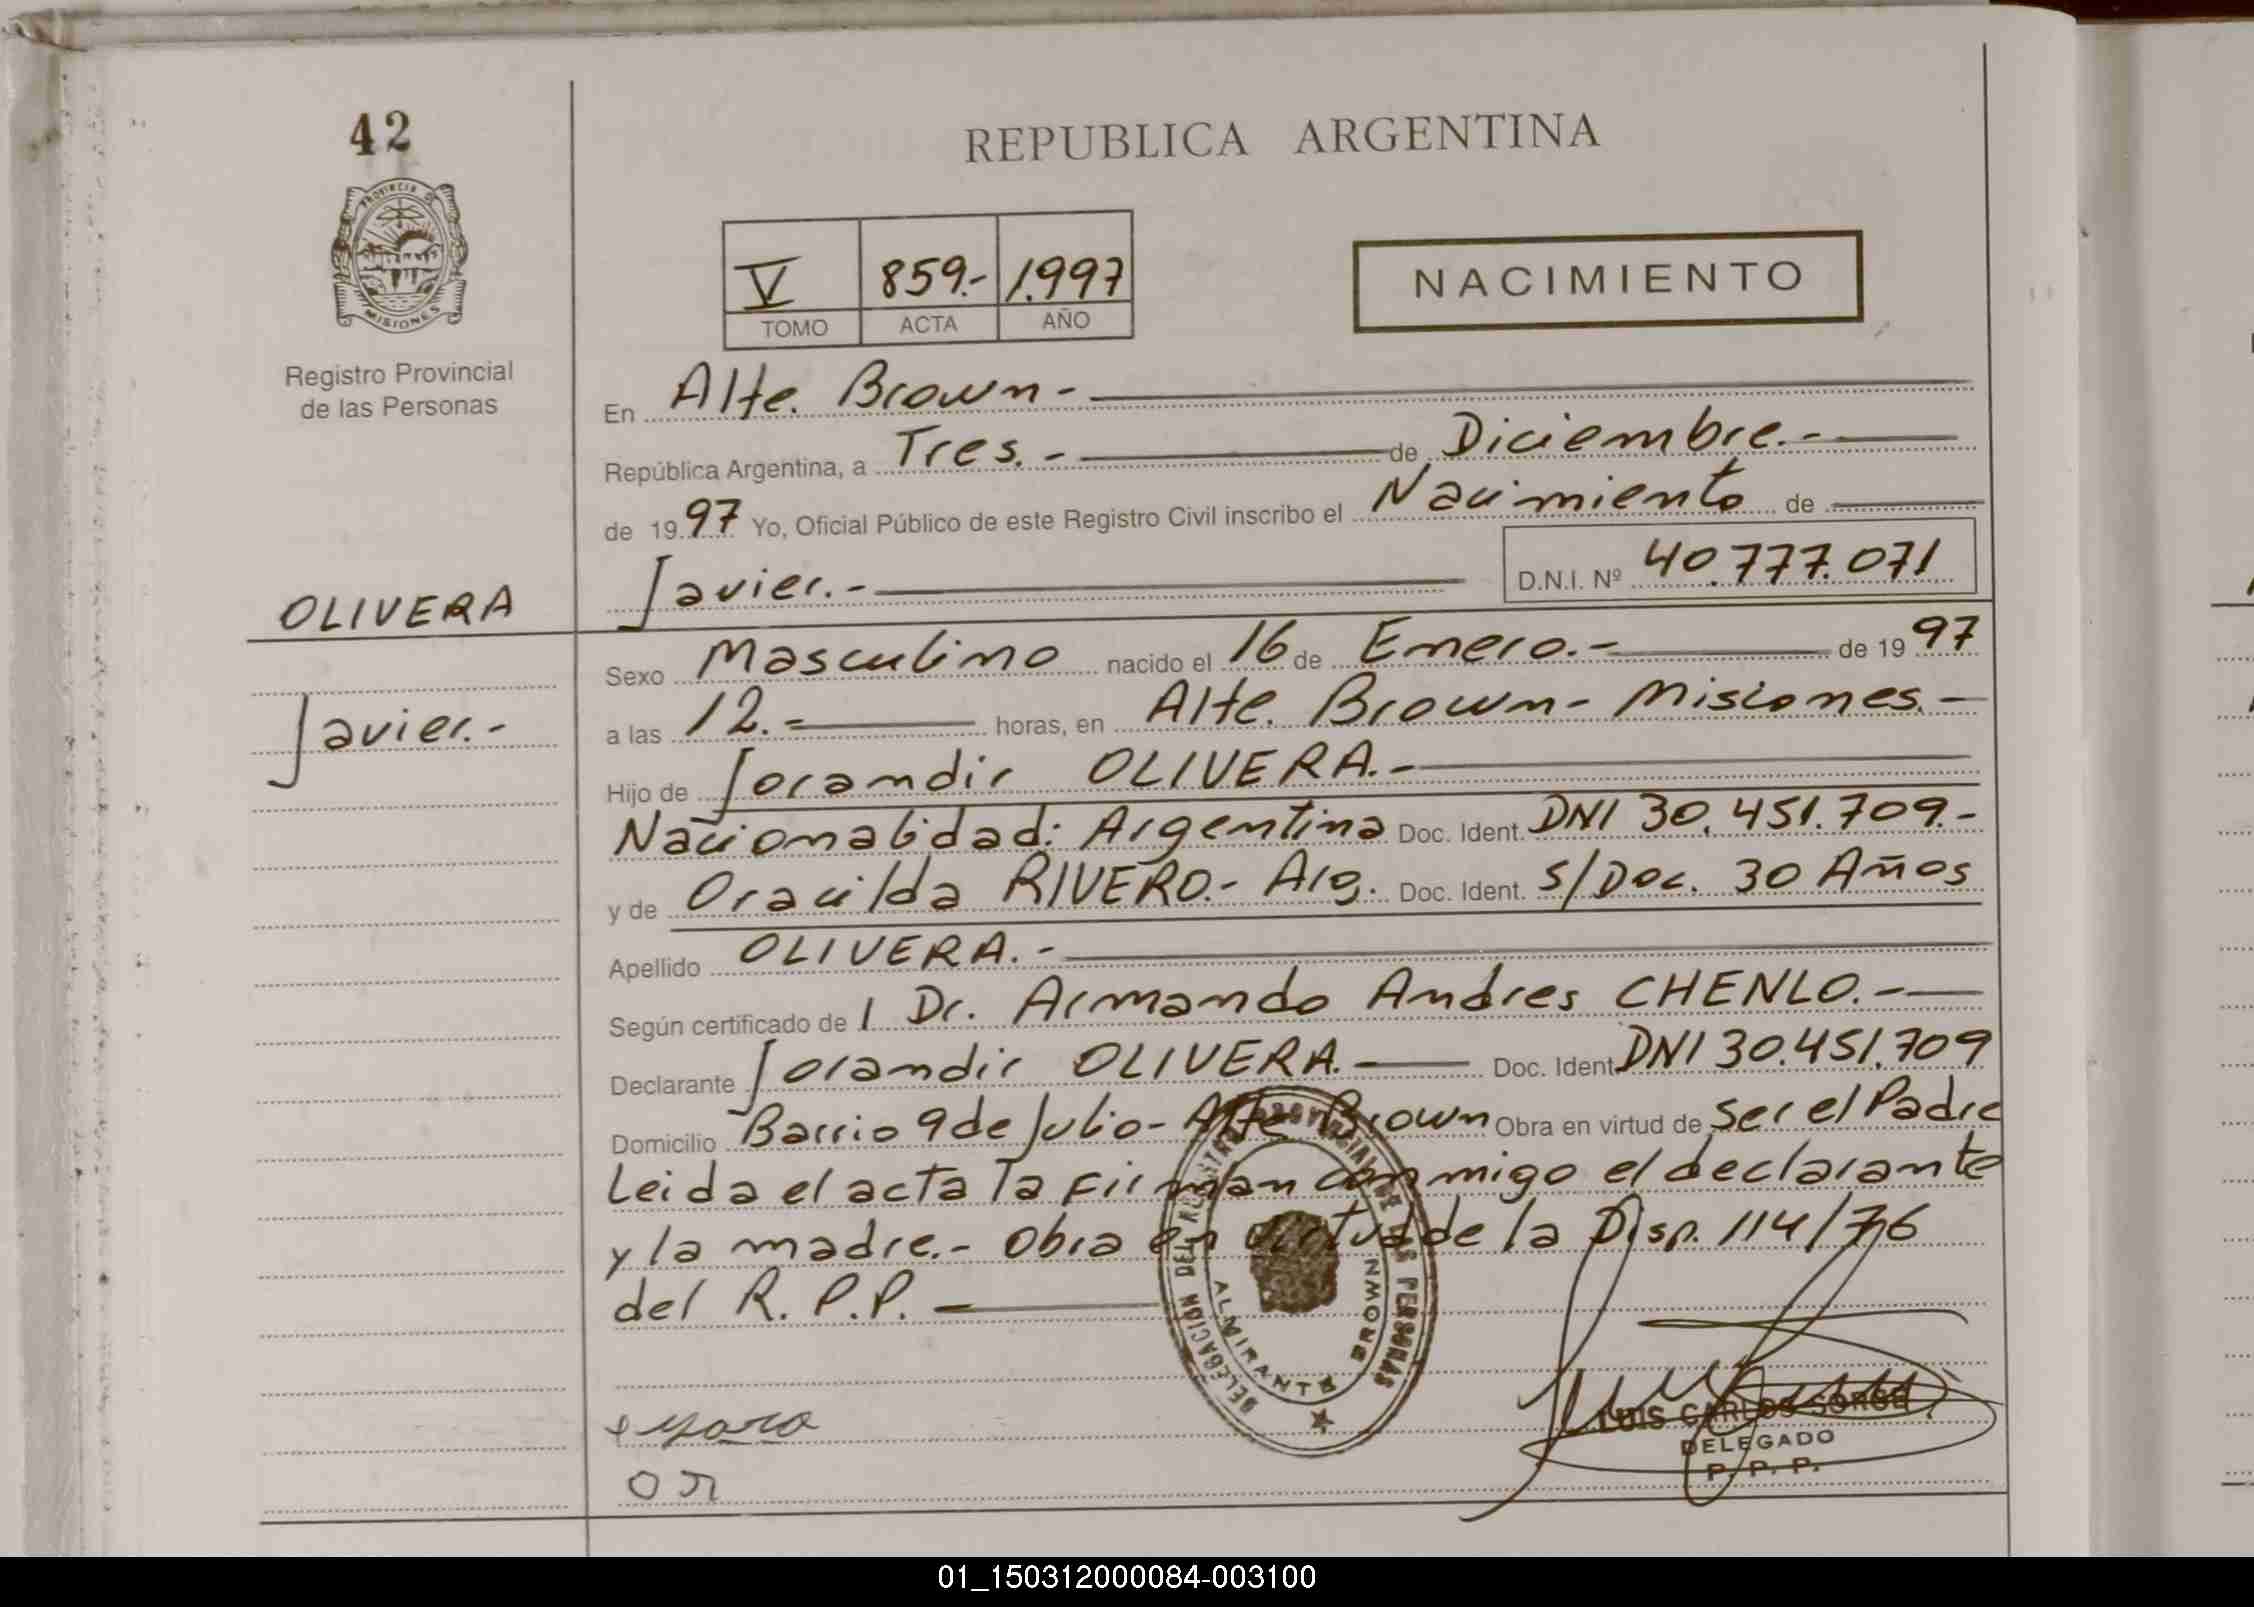 42
PROVINCIA DE
MISIONES
Registro Provincial
de las Personas
REPUBLICA ARGENTINA
V 859.- 1.997
TOMO ACTA AÑO
NACIMIENTO
En Alte. Brown.-
República Argentina, a Tres.- de Diciembre.-
de 1997 Yo, Oficial Público de este Registro Civil inscribo el Nacimiento de
Javier.- D.N.I. Nº 40.777.071
OLIVERA
Javier.-
Sexo Masculino nacido el 16 de Enero.- de 1997
a las 12.- horas, en Alte. Brown- Misiones.-
Hijo de Jorandir OLIVERA.-
Nacionalidad: Argentina Doc. Ident. DNI 30.451.709.-
y de Oracilda RIVERO.- Arg. Doc. Ident. S/Doc. 30 Años
Apellido OLIVERA.-
Según certificado de 1 Dr. Armando Andres CHENLO.-
Declarante Jorandir OLIVERA.- Doc. Ident. DNI 30.451.709
Domicilio Barrio 9 de Julio- Alte Brown Obra en virtud de ser el Padre
Leida el acta la firman conmigo el declarante
y la madre.- Obra en virtud de la Disp. 114/76
del R. P.P.-
DELEGACION DEL REGISTRO PROVINCIAL DE LAS PERSONAS
ALMIRANTE BROWN
LUIS CARLOS SORGE
DELEGADO
P. P. P.
01_150312000084-003100